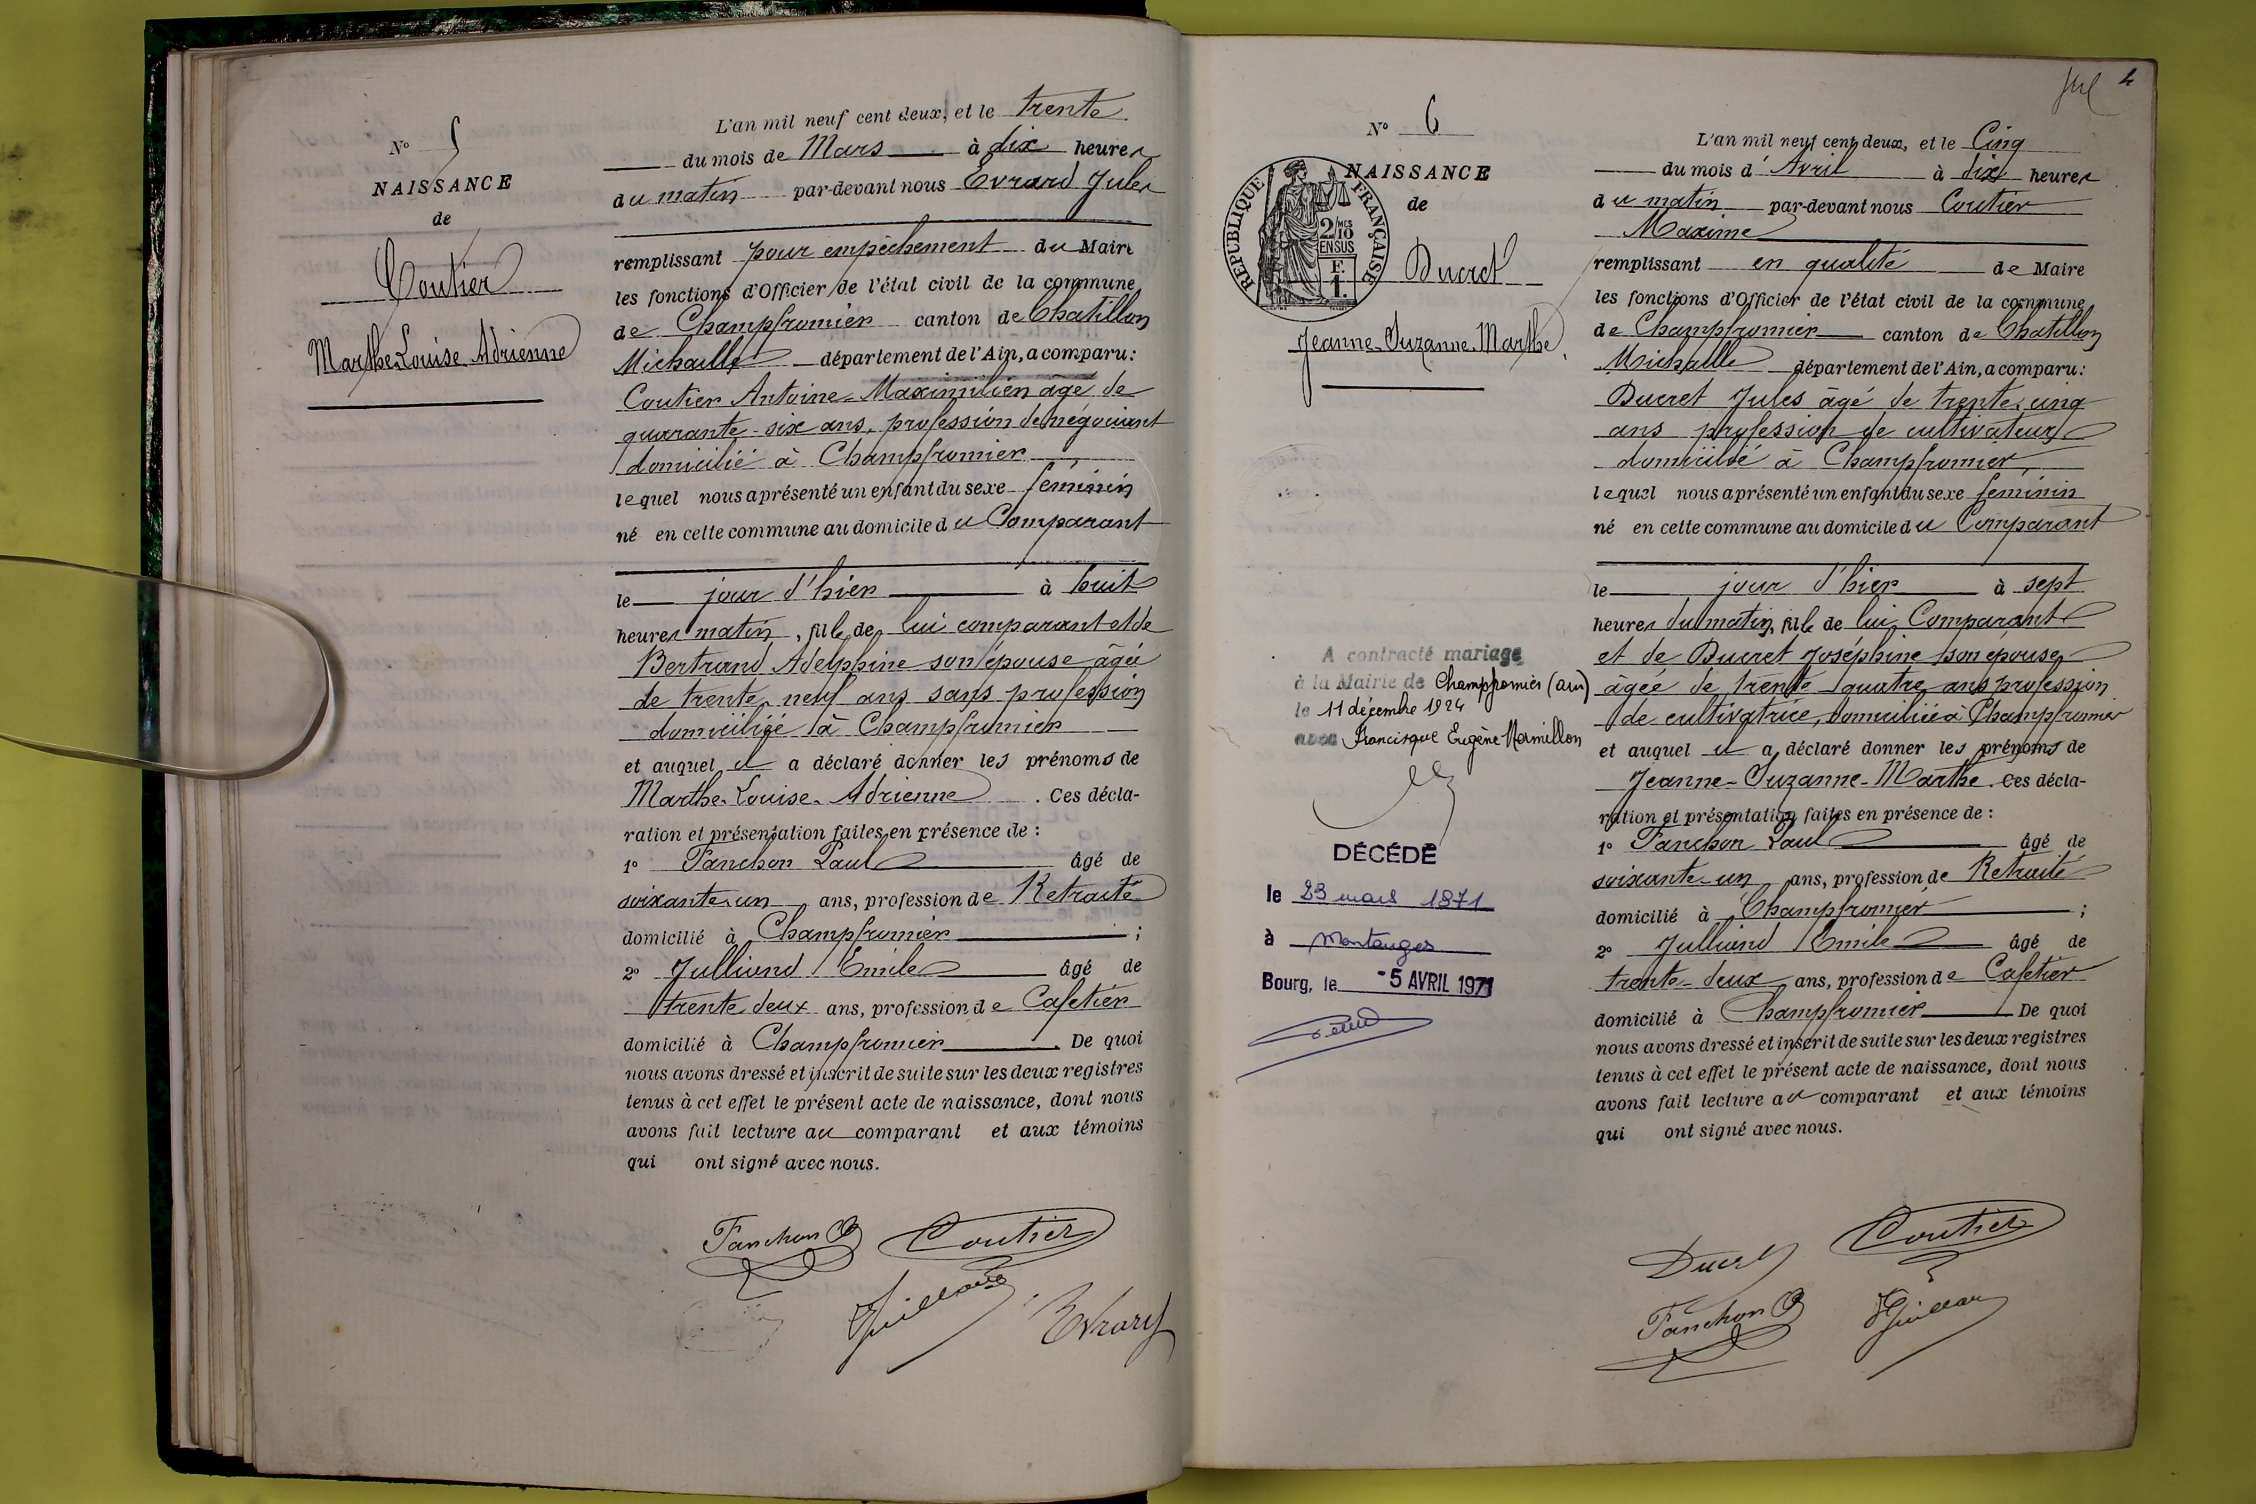 N° 5
NAISSANCE
de
Coutier
Marthe Louise Adrienne
L'an mil neuf cent deux, et le trente
du mois de Mars à dix heures
du matin par-devant nous Evrard Jules
remplissant pour empêchement du Maire
les fonctions d'Officier de l'état civil de la commune
de Champfromier canton de Chatillon
Michaille département de l'Ain, a comparu:
Coutier Antoine-Maximilien âgé de
quarante-six ans, profession de négociant
domicilié à Champfromier
lequel nous a présenté un enfant du sexe féminin
né en cette commune au domicile du Comparant
le jour d'hier à huit
heures matin, fille de lui comparant et de
Bertrand Adelphine son épouse âgée
de trente-neuf ans sans profession
domiciliée à Champfromier
et auquel il a déclaré donner les prénoms de
Marthe-Louise-Adrienne. Ces décla-
ration et présentation faites en présence de :
1° Fanchon Paul âgé de
soixante-un ans, profession de Retraité
domicilié à Champfromier ;
2° Julliand Emile âgé de
trente deux ans, profession de Cafetier
domicilié à Champfromier. De quoi
nous avons dressé et inscrit de suite sur les deux registres
tenus à cet effet le présent acte de naissance, dont nous
avons fait lecture au comparant et aux témoins
qui ont signé avec nous.
Fanchon P Coutier
Evrard
4
N° 6
NAISSANCE
de
RÉPUBLIQUE FRANÇAISE
2/10
EN SUS
F.
1.
Ducret
Jeanne-Suzanne-Marthe
A contracté mariage
à la Mairie de Champfromier (Ain)
le 11 décembre 1924
avec Francisque Eugène Mermillon
DÉCÉDÉ
le 23 mars 1971
à Montanges
Bourg, le -5 AVRIL 1971
L'an mil neuf cent deux, et le Cinq
du mois d'Avril à dix heures
du matin par-devant nous Coutier
Maxime
remplissant en qualité de Maire
les fonctions d'Officier de l'état civil de la commune
de Champfromier canton de Chatillon
Michaille département de l'Ain, a comparu:
Ducret Jules âgé de trente-cinq
ans profession de cultivateur
domicilié à Champfromier,
lequel nous a présenté un enfant du sexe féminin
né en cette commune au domicile du Comparant
le jour d'hier à sept
heures du matin, fille de lui Comparant
et de Ducret Joséphine son épouse
âgée de trente quatre ans profession
de cultivatrice, domiciliée à Champfromier
et auquel il a déclaré donner les prénoms de
Jeanne-Suzanne-Marthe. Ces décla-
ration et présentation faites en présence de :
1° Fanchon Paul âgé de
soixante-un ans, profession de Retraité
domicilié à Champfromier ;
2° Julliand Emile âgé de
trente-deux ans, profession de Cafetier
domicilié à Champfromier De quoi
nous avons dressé et inscrit de suite sur les deux registres
tenus à cet effet le présent acte de naissance, dont nous
avons fait lecture au comparant et aux témoins
qui ont signé avec nous.
Ducret Coutier
Fanchon P